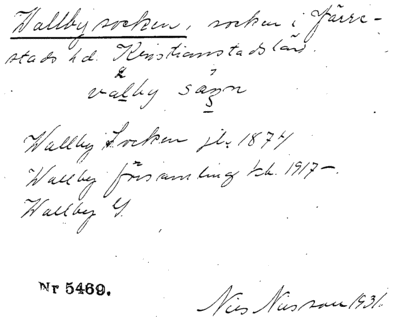 Wallby socken, socken i Järre-
stads hd. Kristianstads län.
valby sázn
Wallby Socken jb. 1874
Wallby församling kb. 1917-.
Wallby G.
Nr 5469.
Nils Nilsson 1931.